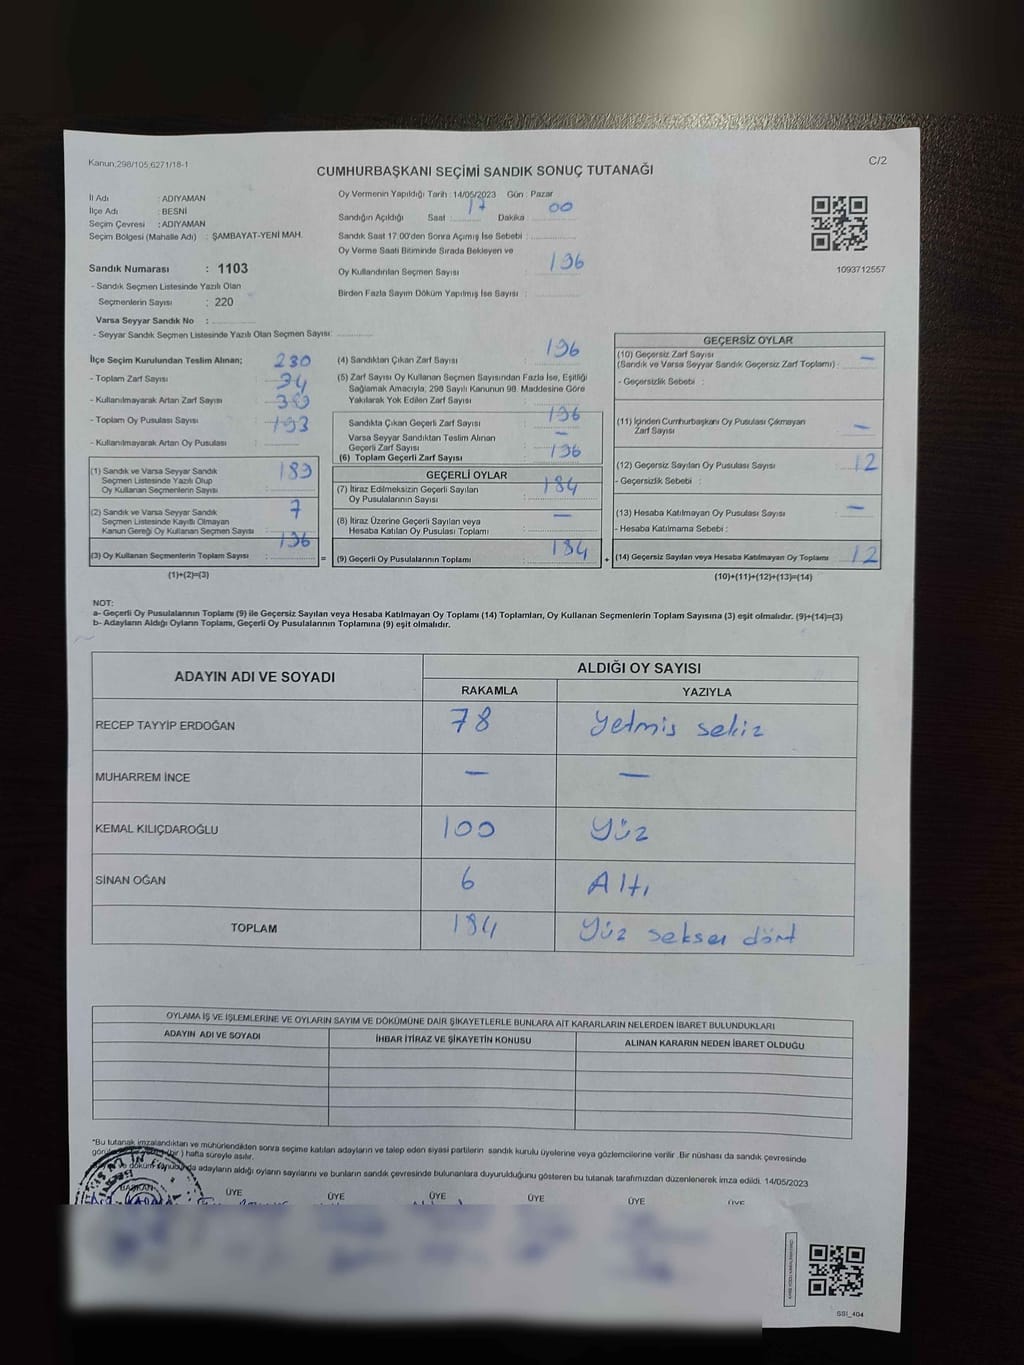 Kanun;298/105,6271/18-1
C/2
CUMHURBAŞKANI SEÇİMİ SANDIK SONUÇ TUTANAĞI
İl Adı : ADIYAMAN
İlçe Adı : BESNİ
Seçim Çevresi : ADIYAMAN
Seçim Bölgesi (Mahalle Adı) : ŞAMBAYAT-YENİ MAH.
Sandık Numarası : 1103
- Sandık Seçmen Listesinde Yazılı Olan
Seçmenlerin Sayısı : 220
Varsa Seyyar Sandık No :
- Seyyar Sandık Seçmen Listesinde Yazılı Olan Seçmen Sayısı:
Oy Vermenin Yapıldığı Tarih : 14/05/2023 Gün : Pazar
Sandığın Açıldığı Saat : 17 Dakika : 00
Sandık Saat 17.00'den Sonra Açımış İse Sebebi :
Oy Verme Saati Bitiminde Sırada Bekleyen ve
Oy Kullandırılan Seçmen Sayısı : 196
Birden Fazla Sayım Döküm Yapılmış İse Sayısı :
1093712557
İlçe Seçim Kurulundan Teslim Alınan; 230
- Toplam Zarf Sayısı 34
- Kullanılmayarak Artan Zarf Sayısı
- Toplam Oy Pusulası Sayısı 193
- Kullanılmayarak Artan Oy Pusulası
(1) Sandık ve Varsa Seyyar Sandık
Seçmen Listesinde Yazılı Olup
Oy Kullanan Seçmenlerin Sayısı : 189
(2) Sandık ve Varsa Seyyar Sandık
Seçmen Listesinde Kayıtlı Olmayan
Kanun Gereği Oy Kullanan Seçmen Sayısı : 7
(3) Oy Kullanan Seçmenlerin Toplam Sayısı : 196
(1)+(2)=(3)
(4) Sandıktan Çıkan Zarf Sayısı : 196
(5) Zarf Sayısı Oy Kullanan Seçmen Sayısından Fazla İse, Eşitliği
Sağlamak Amacıyla, 298 Sayılı Kanunun 98. Maddesine Göre
Yakılarak Yok Edilen Zarf Sayısı :
Sandıkta Çıkan Geçerli Zarf Sayısı : 196
Varsa Seyyar Sandıktan Teslim Alınan
Geçerli Zarf Sayısı : —
(6) Toplam Geçerli Zarf Sayısı : 196
GEÇERLİ OYLAR
(7) İtiraz Edilmeksizin Geçerli Sayılan
Oy Pusulalarının Sayısı : 184
(8) İtiraz Üzerine Geçerli Sayılan veya
Hesaba Katılan Oy Pusulası Toplamı : —
= (9) Geçerli Oy Pusulalarının Toplamı : 184
GEÇERSİZ OYLAR
(10) Geçersiz Zarf Sayısı
(Sandık ve Varsa Seyyar Sandık Geçersiz Zarf Toplamı) : —
- Geçersizlik Sebebi :
(11) İçinden Cumhurbaşkanı Oy Pusulası Çıkmayan
Zarf Sayısı : —
(12) Geçersiz Sayılan Oy Pusulası Sayısı : 12
- Geçersizlik Sebebi :
(13) Hesaba Katılmayan Oy Pusulası Sayısı : —
- Hesaba Katılmama Sebebi :
+ (14) Geçersiz Sayılan veya Hesaba Katılmayan Oy Toplamı : 12
(10)+(11)+(12)+(13)=(14)
NOT:
a- Geçerli Oy Pusulalarının Toplamı (9) ile Geçersiz Sayılan veya Hesaba Katılmayan Oy Toplamı (14) Toplamları, Oy Kullanan Seçmenlerin Toplam Sayısına (3) eşit olmalıdır. (9)+(14)=(3)
b- Adayların Aldığı Oyların Toplamı, Geçerli Oy Pusulalarının Toplamına (9) eşit olmalıdır.
ADAYIN ADI VE SOYADI
ALDIĞI OY SAYISI
RAKAMLA YAZIYLA
RECEP TAYYİP ERDOĞAN 78 Yetmiş sekiz
MUHARREM İNCE — —
KEMAL KILIÇDAROĞLU 100 Yüz
SİNAN OĞAN 6 Altı
TOPLAM 184 Yüz seksen dört
OYLAMA İŞ VE İŞLEMLERİNE VE OYLARIN SAYIM VE DÖKÜMÜNE DAİR ŞİKAYETLERLE BUNLARA AİT KARARLARIN NELERDEN İBARET BULUNDUKLARI
ADAYIN ADI VE SOYADI İHBAR İTİRAZ VE ŞİKAYETİN KONUSU ALINAN KARARIN NEDEN İBARET OLDUĞU
*Bu tutanak imzalandıktan ve mühürlendikten sonra seçime katılan adayların ve talep eden siyasi partilerin sandık kurulu üyelerine veya gözlemcilerine verilir .Bir nüshası da sandık çevresinde
(bir ) hafta süreyle asılır.
ve döküm sonucunda adayların aldığı oyların sayılarını ve bunların sandık çevresinde bulunanlara duyurulduğunu gösteren bu tutanak tarafımızdan düzenlenerek imza edildi. 14/05/2023
BAŞKAN ÜYE ÜYE ÜYE ÜYE ÜYE ÜYE
SSI_404